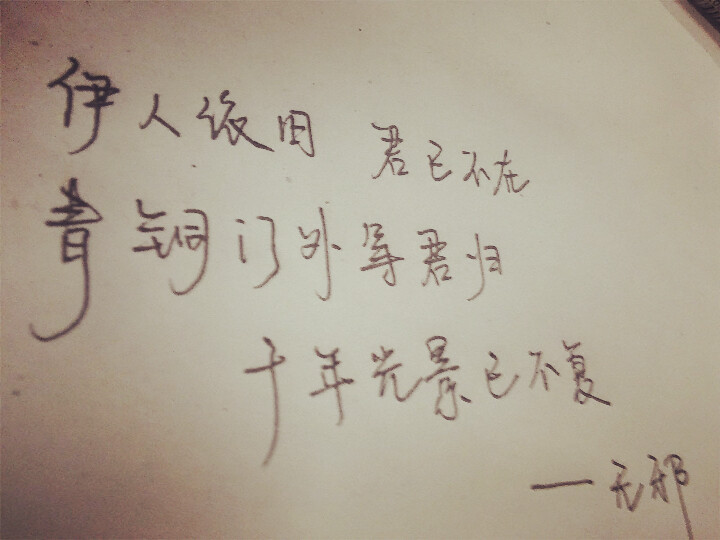 伊人依旧 君已不在
青铜门外等君归
十年光景已不复
—无邪